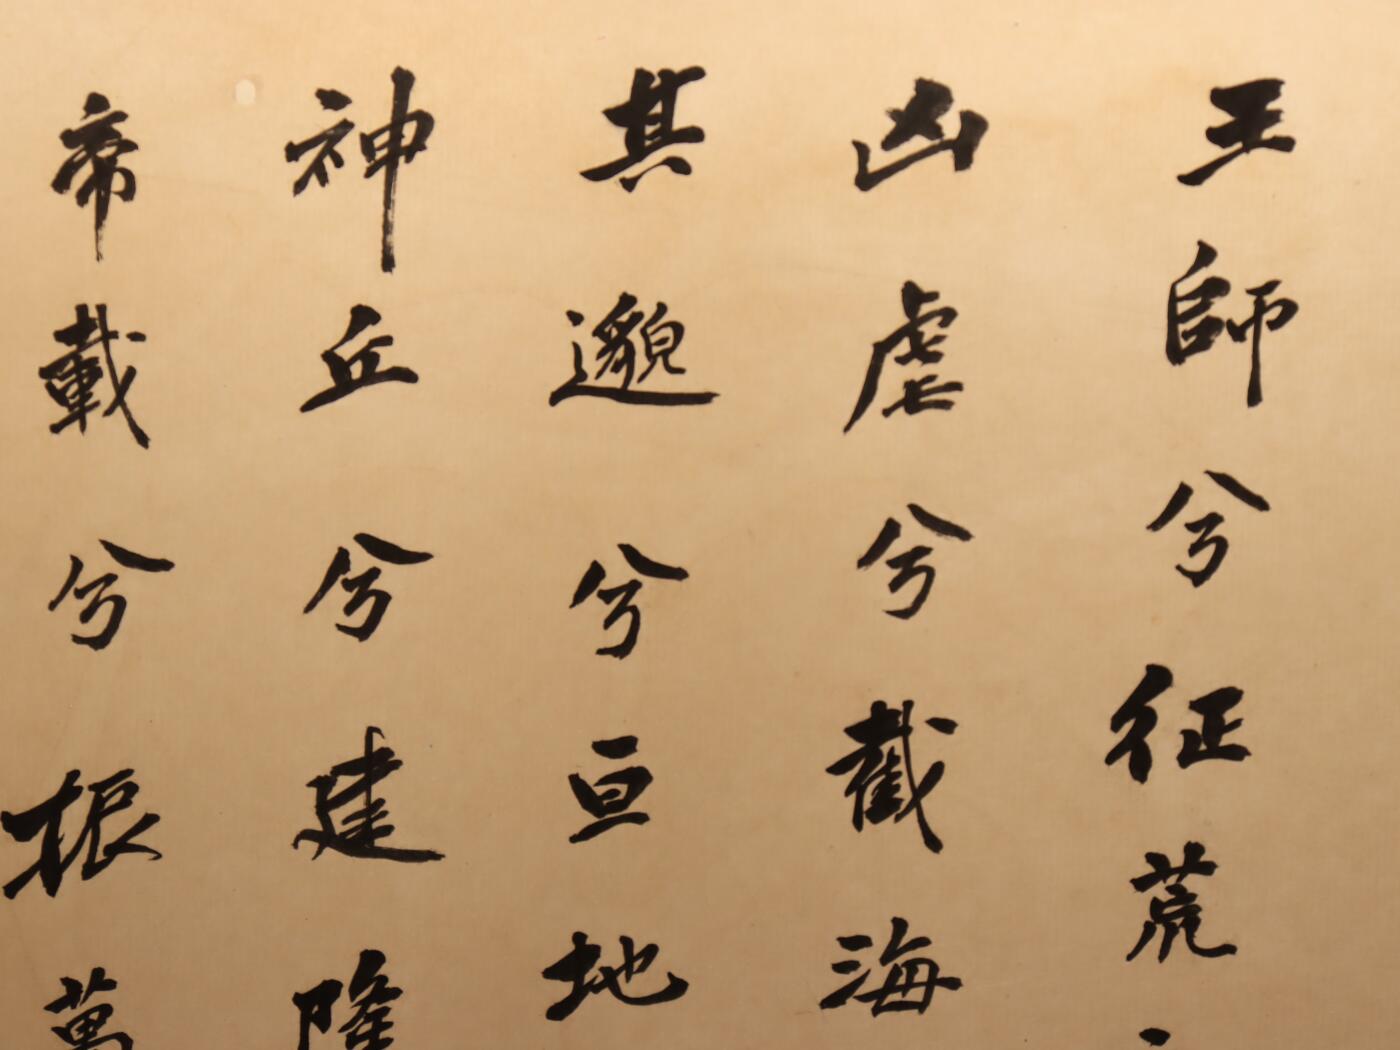 王師兮征荒
凶虐兮截海
其邈兮亘地
神丘兮建隆
帝載兮振萬